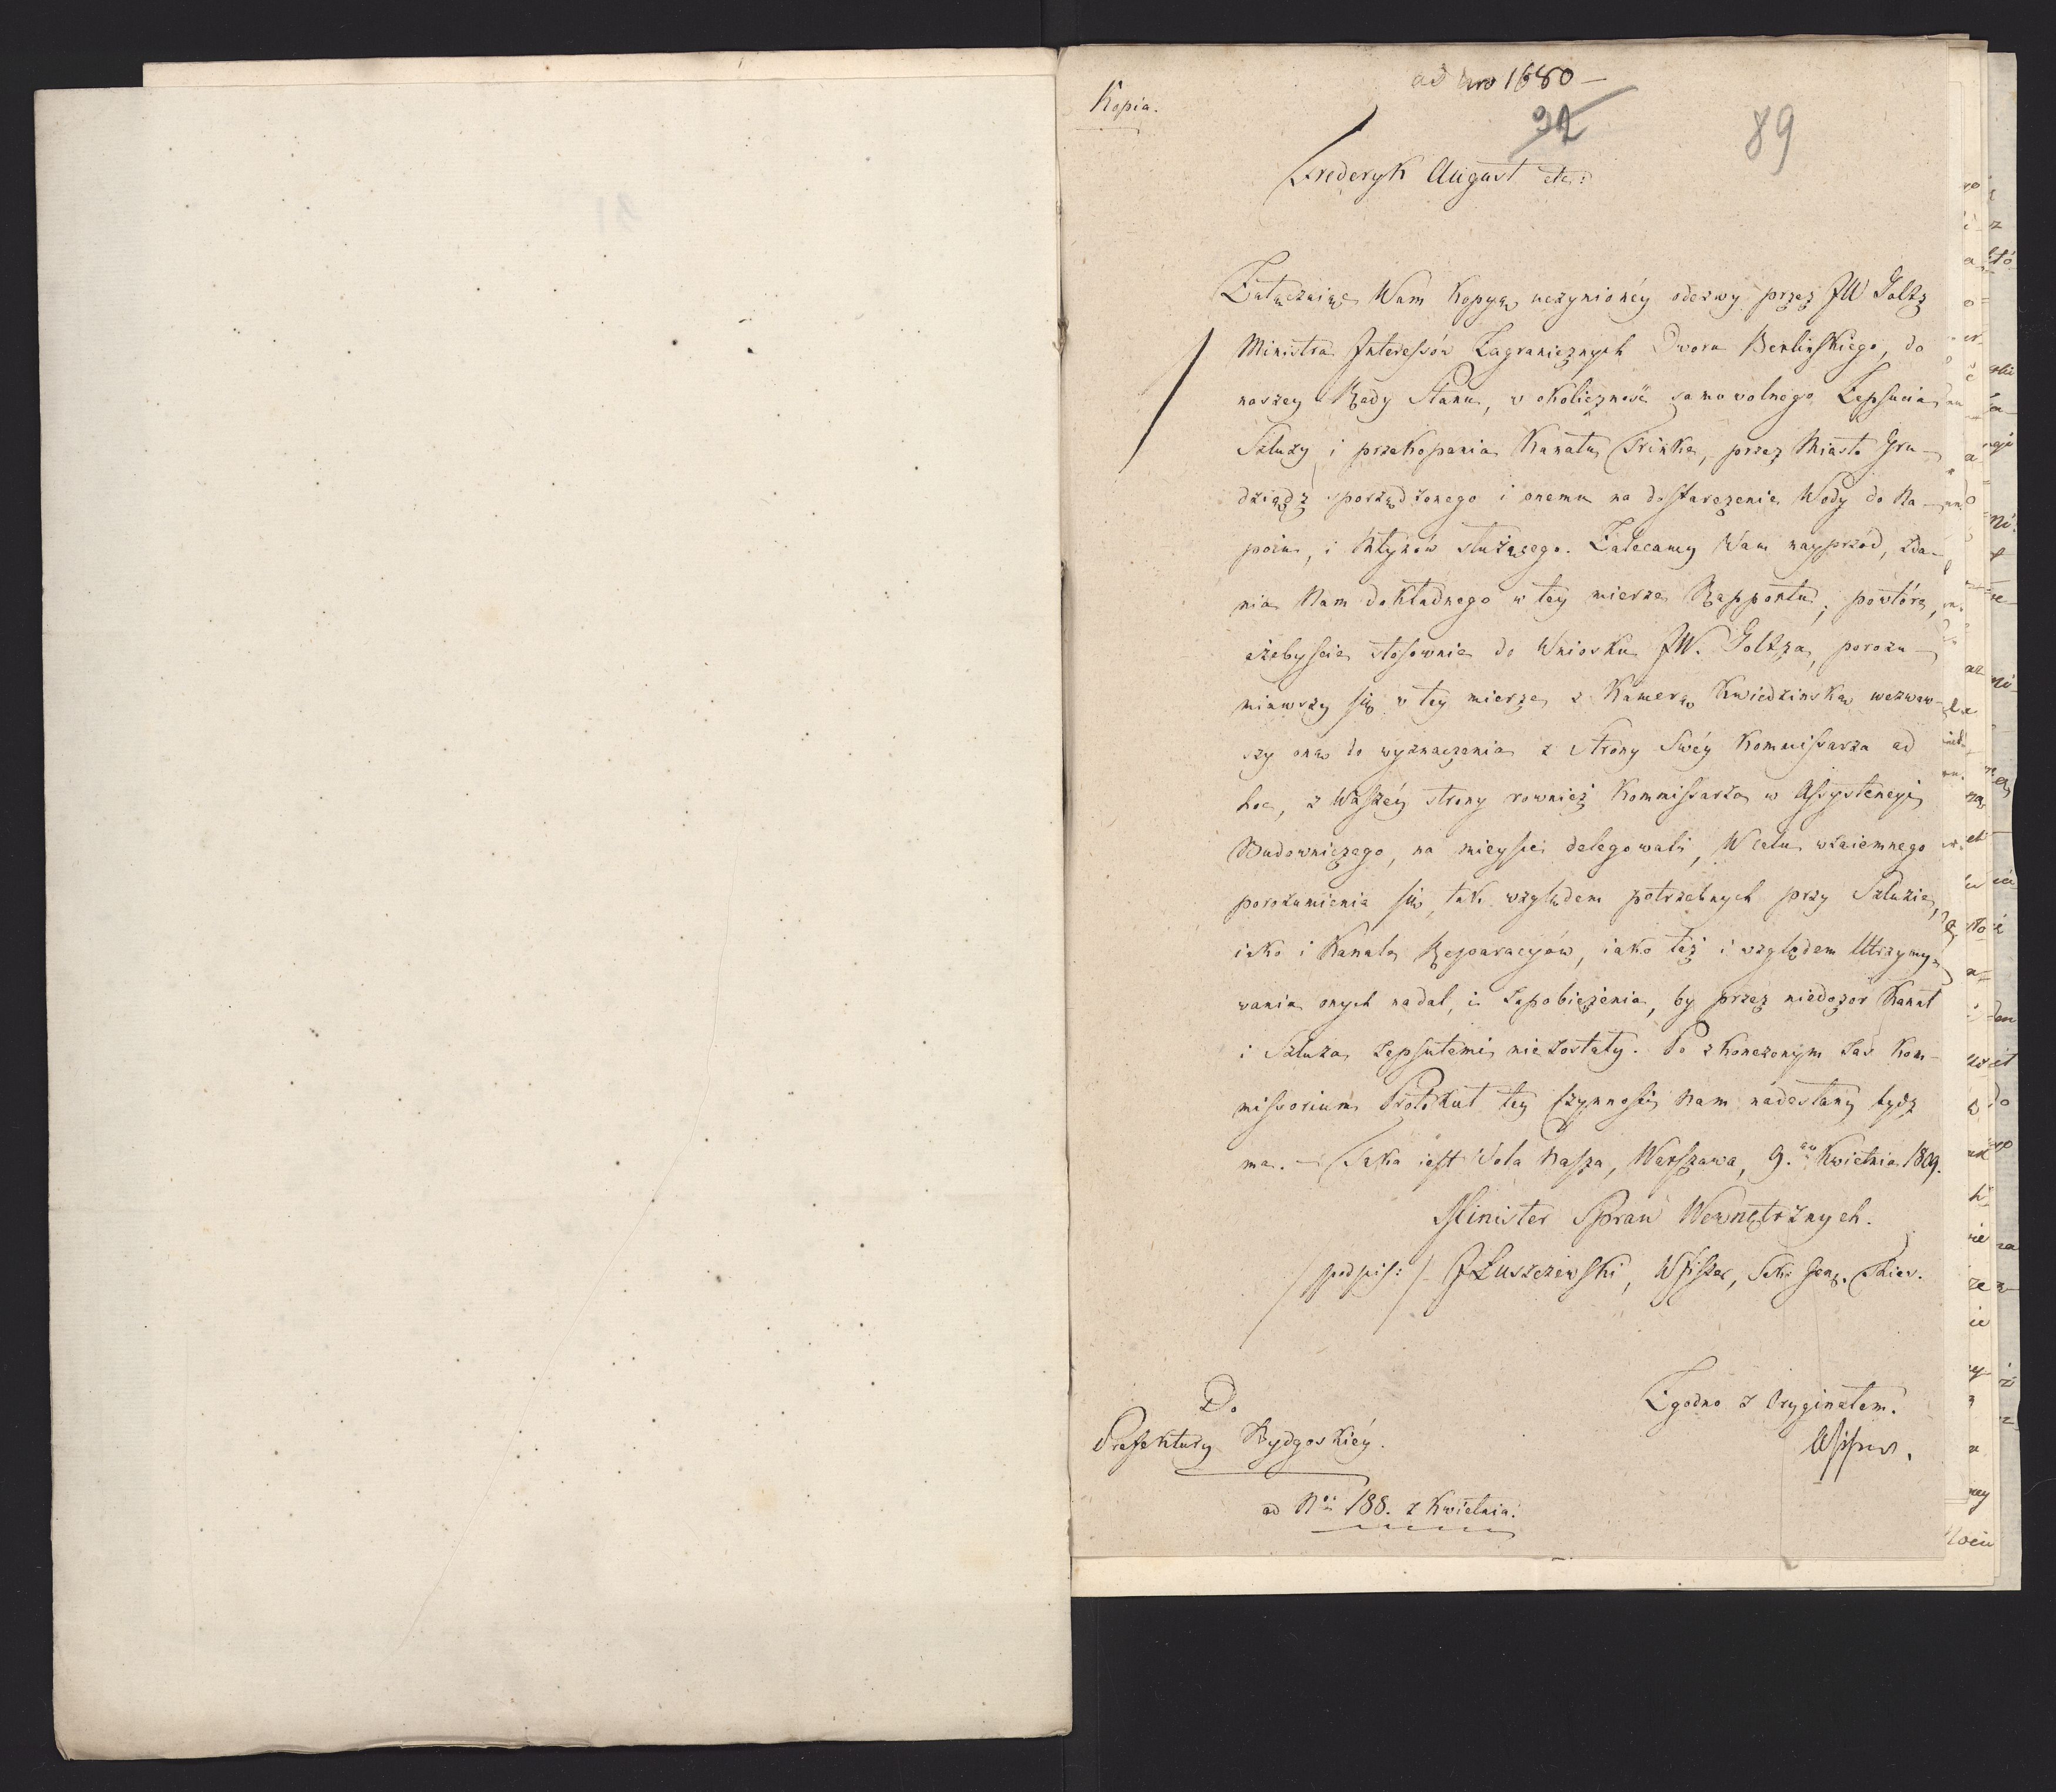 Kopia.
ad nro 1680 —
92
89
Frederyk August etc:
Załączaiąc Wam Kopyą uczynionéy odezwy przez JW Goltz
Ministra Interessów Zagranicznych Dworu Berlinskiego, do
naszey Rady Stanu, w okoliczności samowolnego Zepsucia
Szluzy i przekopania Kanału Trinke, przez Miasto Gru-
dziądz sporządzonego i onemu na dostarczenie Wody do Na-
poiu, i Młynów służącego. Zalecamy Wam nayprzód, zda-
nia Nam dokładnego w tey mierze Rapportu; powtóre,
ażebyscie stosownie do Wniosku JW. Goltza, porozu-
miawszy się w tey mierze z Kamerą Kwiedzinską wezwaw-
szy oną do wyznaczenia z strony Swéy Kommissarza ad
hoc, z Waszéy strony rownież Kommissarza w Assystencyi
Budowniczego, na mieysce delegowali, W celu wzaiemnego
porozumienia się, tak względem potrzebnych przy Szluzie,
iako i Kanale Reparacyów, iako też i względem Utrzymy-
wania onych nadal, i Zapobieżenia, by przez niedozor Kanał
i Szluza Zepsutemi nie zostały. Po zkonczonym zas Kom-
missorium Protokuł tey Czynności Nam nadesłany bydz
ma. — Taka iest Wola Nasza, Warszawa, 9. Kwietnia 1809.
Minister Spraw Wewnętrznych.
/podpis:/ JŁuszczewski,
Do
Prefektury Bydgoskiéy.
Zgodno z Oryginałem.
ad Nrii 188. z Kwietnia.